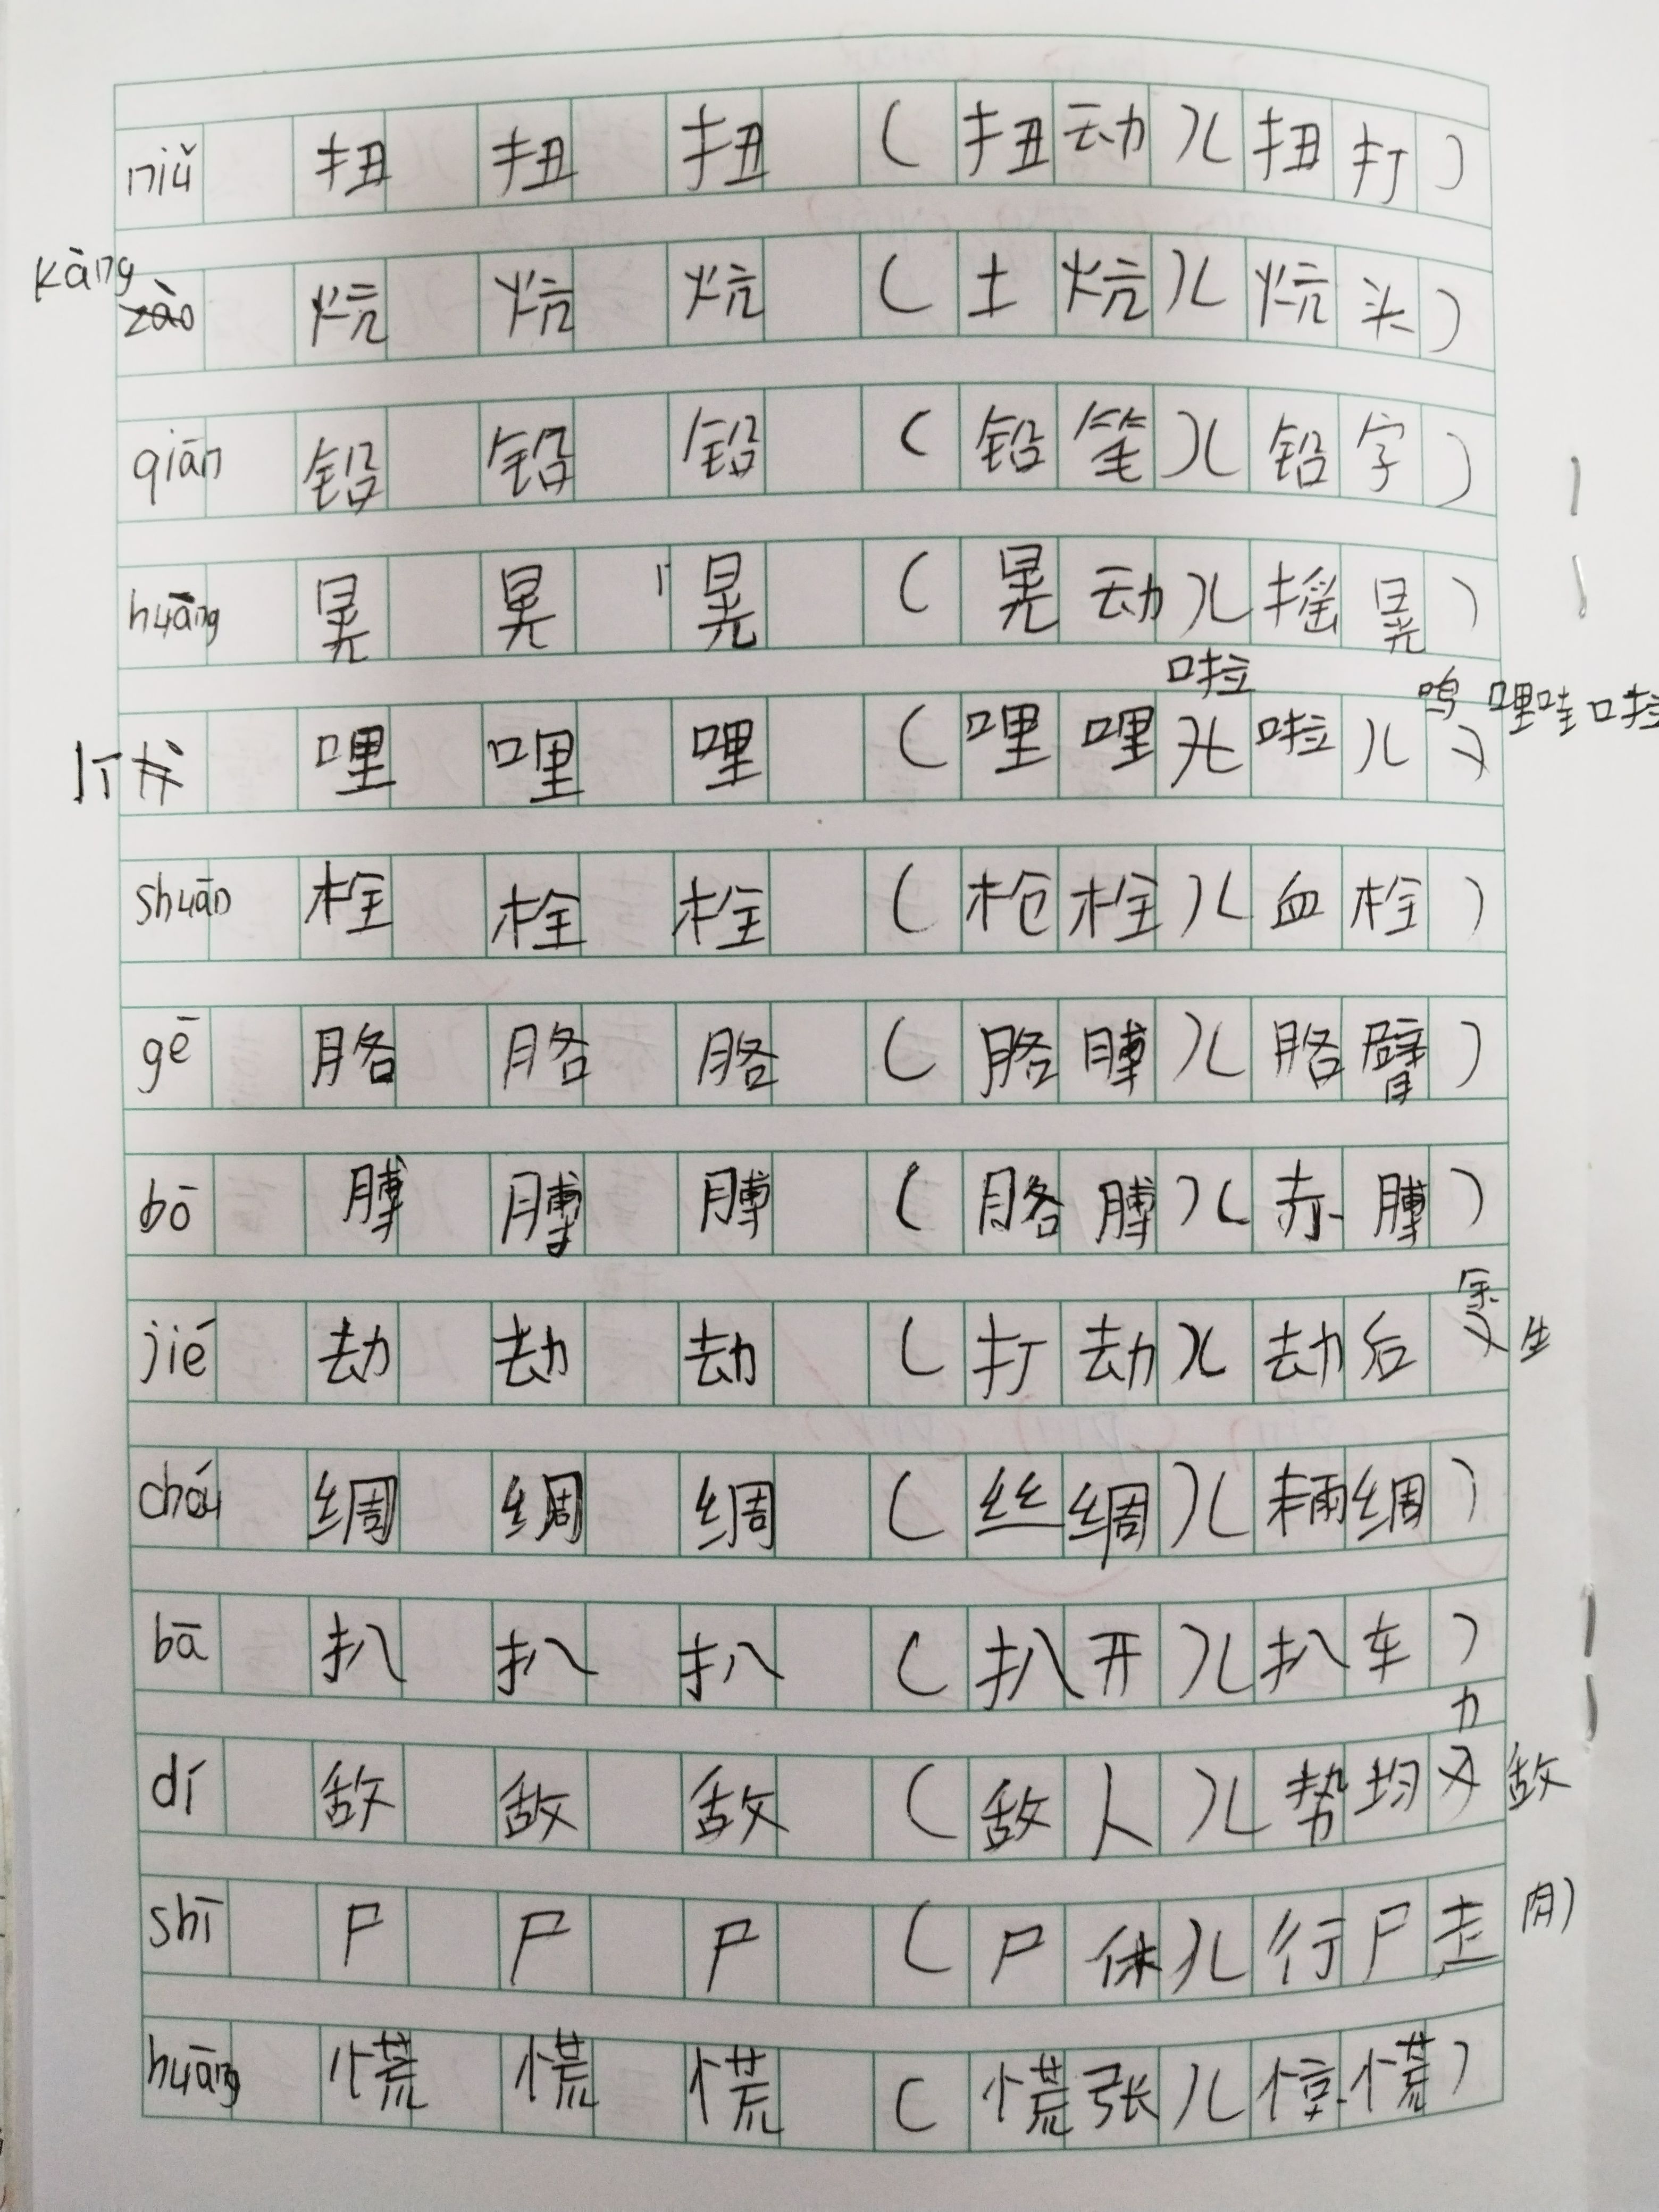 niǔ 扭 扭 扭 (扭动)(扭打)
kàng 炕 炕 炕 (土炕)(炕头)
qiān 铅 铅 铅 (铅笔)(铅字)
huāng 晃 晃 晃 (晃动)(摇晃)
哩 哩 哩 (哩哩啦啦)(呜哩哇啦
shuān 栓 栓 栓 (枪栓)(血栓)
gē 胳 胳 胳 (胳膊)(胳臂)
bō 膊 膊 膊 (胳膊)(赤膊)
jié 劫 劫 劫 (打劫)(劫后余生
chóu 绸 绸 绸 (丝绸)(绸)
bā 扒 扒 扒 (扒开)(扒车)
dí 敌 敌 敌 (敌人)(势均力敌
shī 尸 尸 尸 (尸体)(行尸走肉)
huāng 慌 慌 慌 (慌张)(惊慌)